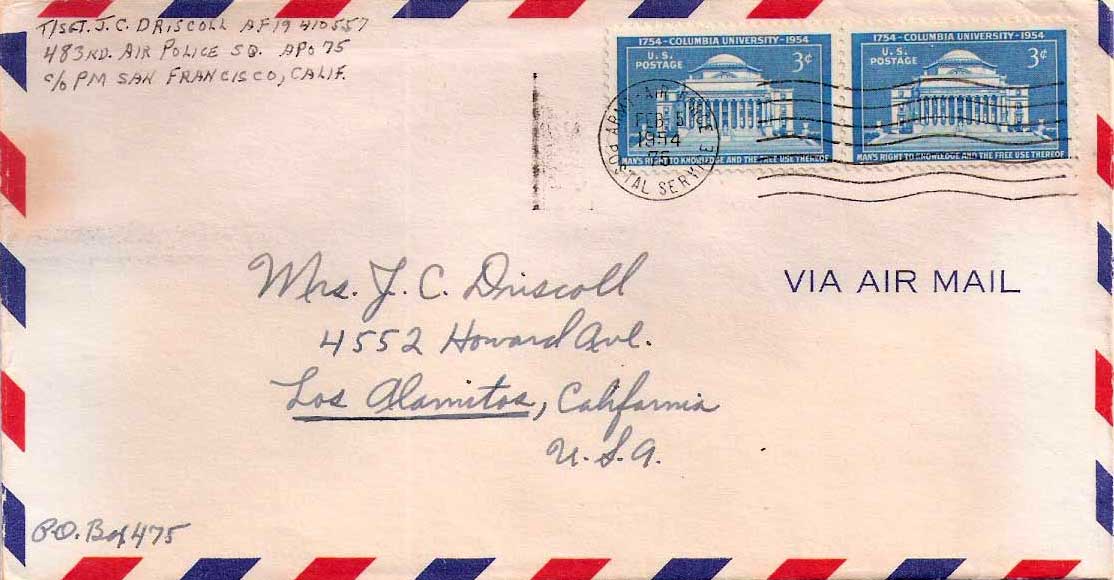 T/SGT. J. C. DRISCOLL AF 19 410 557
483RD. AIR POLICE SQ. APO 75
c/o PM SAN FRANCISCO, CALIF.
1754 - COLUMBIA UNIVERSITY - 1954
U.S. POSTAGE 3¢
MAN'S RIGHT TO KNOWLEDGE AND THE FREE USE THEREOF
1754 - COLUMBIA UNIVERSITY - 1954
U.S. POSTAGE 3¢
MAN'S RIGHT TO KNOWLEDGE AND THE FREE USE THEREOF
ARMY-AIR FORCE
FEB 5
1954
75
POSTAL SERVICE
VIA AIR MAIL
Mrs. J. C. Driscoll
4552 Howard Ave.
Los Alamitos, California
U.S.A.
P.O. Box 475